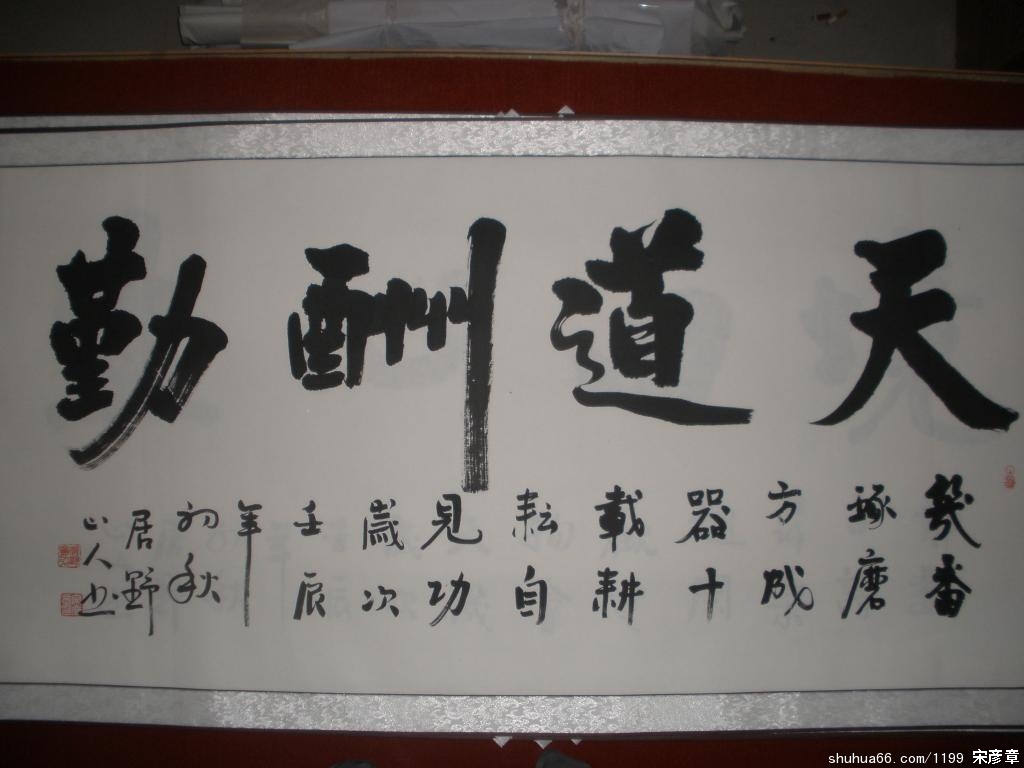 天道酬勤
幾番
琢磨
方成
器十
載耕
耘自
見功
歲次
壬辰
年
初秋
居野
山人书
shuhua66.com/1199 宋彦章